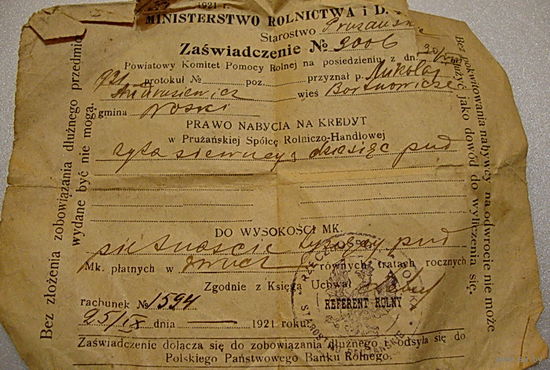 1921 r.
MINISTERSTWO ROLNICTWA i D.
Starostwo Prużańskie
Zaświadczenie № 2006
Powiatowy Komitet Pomocy Rolnej na posiedzeniu z dn.
protokuł № poz. przyznał p. Mikołaj
wieś Bortnowicze
gmina Noski
PRAWO NABYCIA NA KREDYT
w Prużańskiej Spółce Rolniczo-Handlowej
żyta siewnego dziesięć pud
DO WYSOKOŚCI MK.
piętnaście tysięcy
Mk. płatnych w dwuch równych tratach rocznych
Zgodnie z Księgą Uchwał
rachunek № 1594
REFERENT ROLNY
25/IX dnia 1921 roku
Zaświadczenie dołącza się do zobowiązania dłużnego i odsyła się do
Polskiego Państwowego Banku Rolnego.
Bez złożenia zobowiązania dłużnego przedmio
wydane być nie mogą.
Bez pokwitowania nabywcy na odwrocie nie może
służyć jako dowód do wyliczenia się.